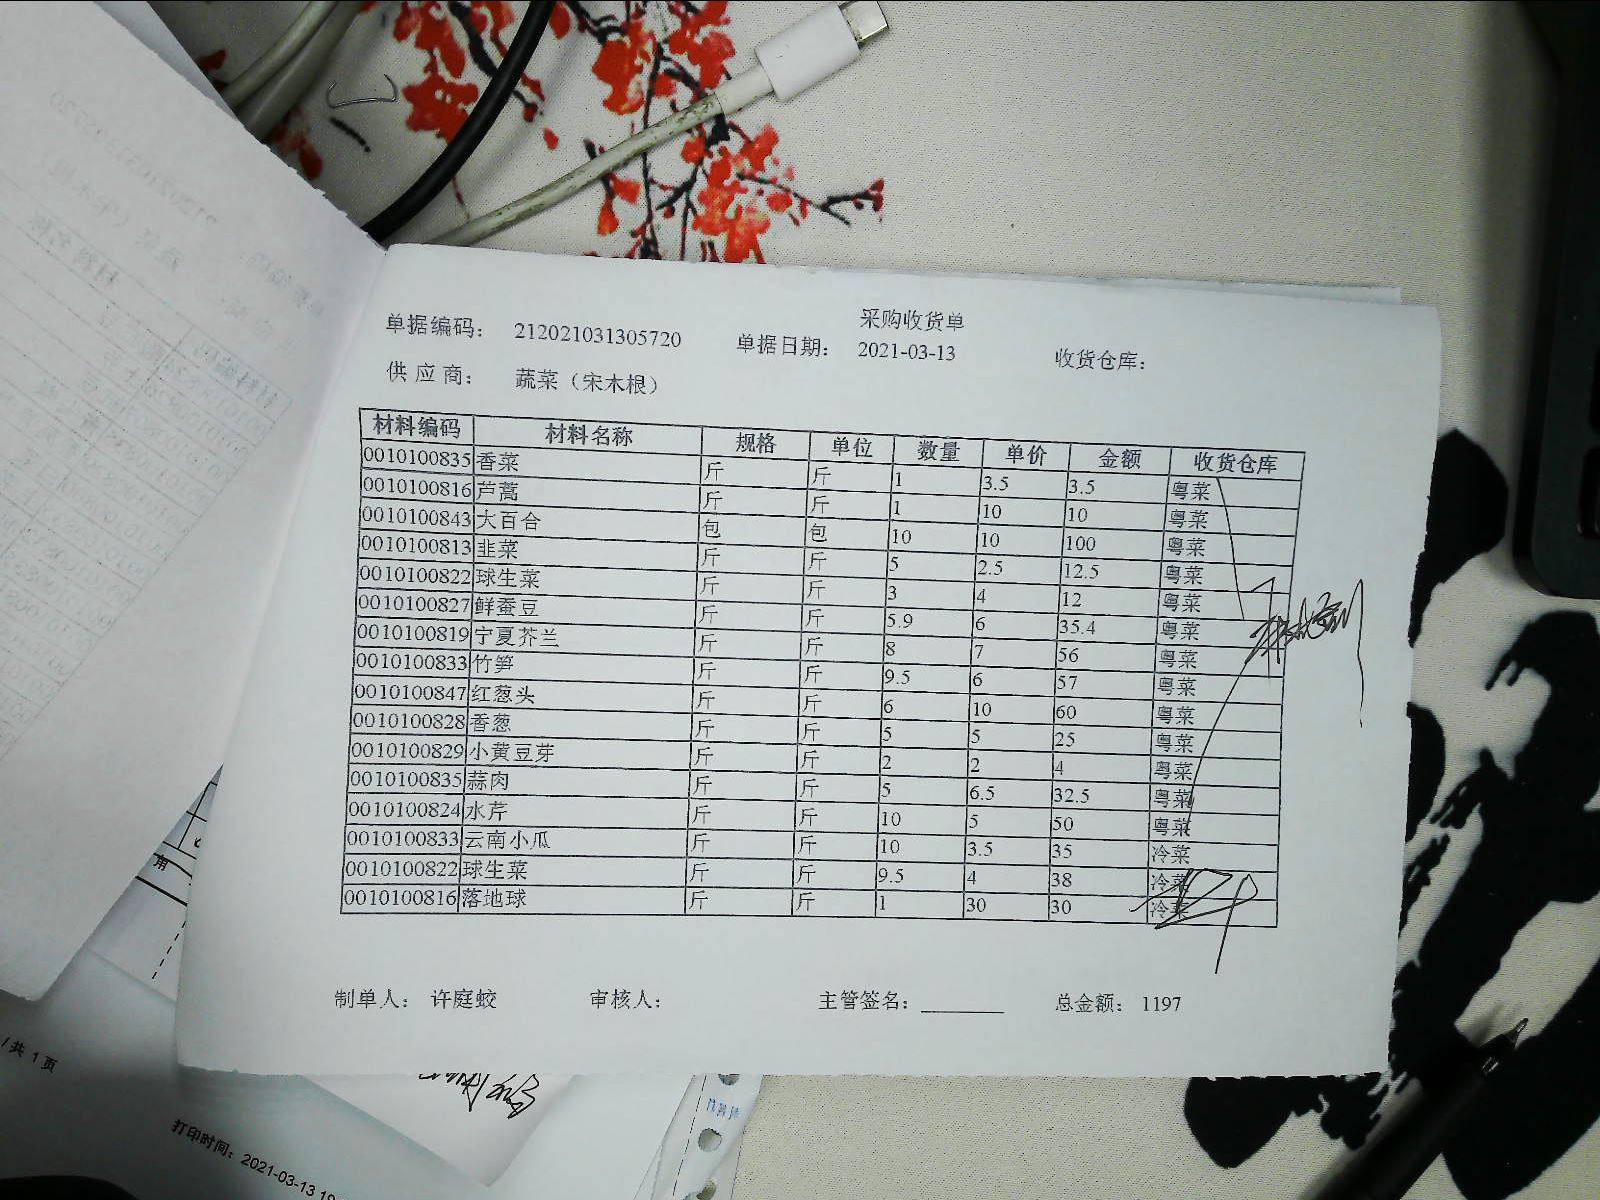 采购收货单
单据编码： 212021031305720 单据日期： 2021-03-13 收货仓库：
供应商： 蔬菜（宋木根）
材料编码 材料名称 规格 单位 数量 单价 金额 收货仓库
0010100835 香菜 斤 斤 1 3.5 3.5 粤菜
0010100816 芦蒿 斤 斤 1 10 10 粤菜
0010100843 大百合 包 包 10 10 100 粤菜
0010100813 韭菜 斤 斤 5 2.5 12.5 粤菜
0010100822 球生菜 斤 斤 3 4 12 粤菜
0010100827 鲜蚕豆 斤 斤 5.9 6 35.4 粤菜
0010100819 宁夏芥兰 斤 斤 8 7 56 粤菜
0010100833 竹笋 斤 斤 9.5 6 57 粤菜
0010100847 红葱头 斤 斤 6 10 60 粤菜
0010100828 香葱 斤 斤 5 5 25 粤菜
0010100829 小黄豆芽 斤 斤 2 2 4 粤菜
0010100835 蒜肉 斤 斤 5 6.5 32.5 粤菜
0010100824 水芹 斤 斤 10 5 50 粤菜
0010100833 云南小瓜 斤 斤 10 3.5 35 冷菜
0010100822 球生菜 斤 斤 9.5 4 38 冷菜
0010100816 落地球 斤 斤 1 30 30 冷菜
制单人： 许庭蛟 审核人： 主管签名： 总金额： 1197
/共 1 页
打印时间：2021-03-13